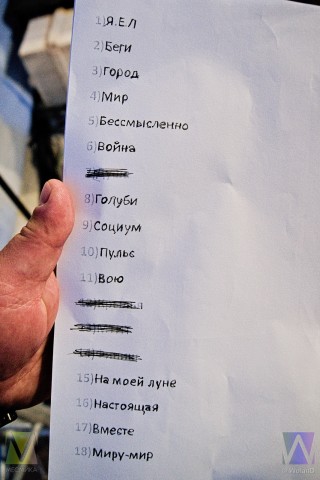 1)Я.Е.Л
2)Беги
3)Город
4)Мир
5)Бессмысленно
6)Война
8)Голуби
9)Социум
10)Пульс
11)Вою
15)На моей луне
16)Настоящая
17)Вместе
18)Миру-мир